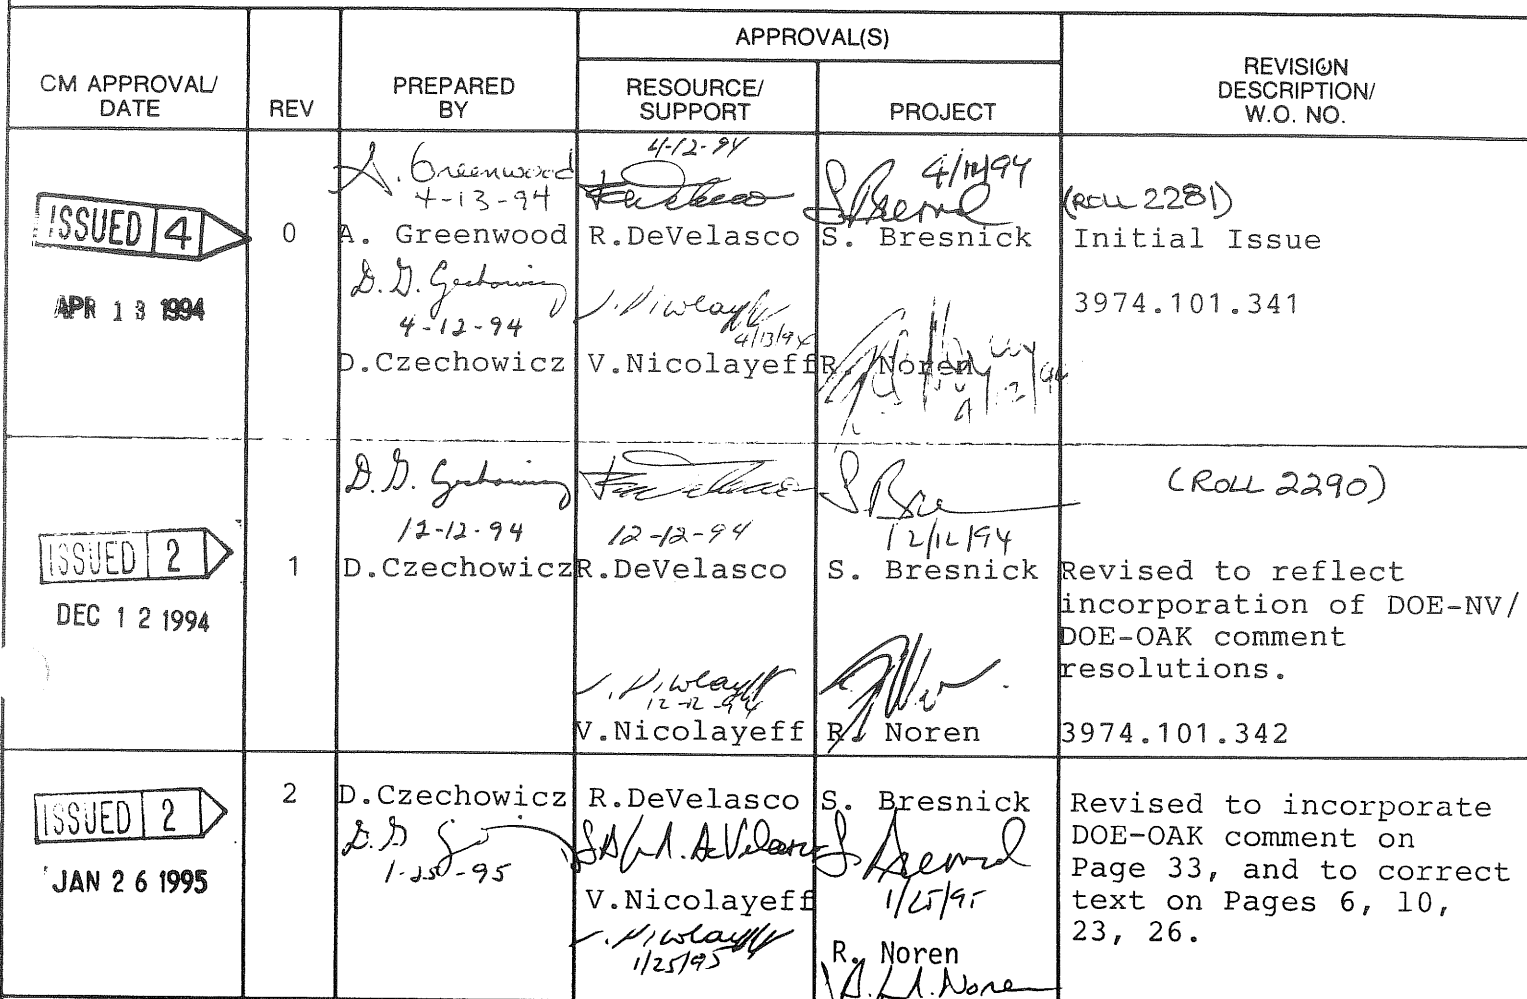 APPROVAL(S)
CM APPROVAL/
DATE
REV
PREPARED
BY
RESOURCE/
SUPPORT
PROJECT
REVISION
DESCRIPTION/
W.O. NO.
ISSUED 4
APR 13 1994
0
A. Greenwood
4-13-94
A. Greenwood
4-12-94
D.Czechowicz
4-12-94
R.DeVelasco
4/13/94
V.Nicolayeff
S. Bresnick
R. Noren
(ROLL 2281)
Initial Issue
3974.101.341
ISSUED 2
DEC 12 1994
1
12-12-94
D.Czechowicz
12-12-94
R.DeVelasco
12-12-94
V.Nicolayeff
12/12/94
S. Bresnick
R. Noren
(ROLL 2290)
Revised to reflect
incorporation of DOE-NV/
DOE-OAK comment
resolutions.
3974.101.342
ISSUED 2
JAN 26 1995
2
D.Czechowicz
1-25-95
R.DeVelasco
V.Nicolayeff
1/25/95
S. Bresnick
1/25/95
R. Noren
Revised to incorporate
DOE-OAK comment on
Page 33, and to correct
text on Pages 6, 10,
23, 26.